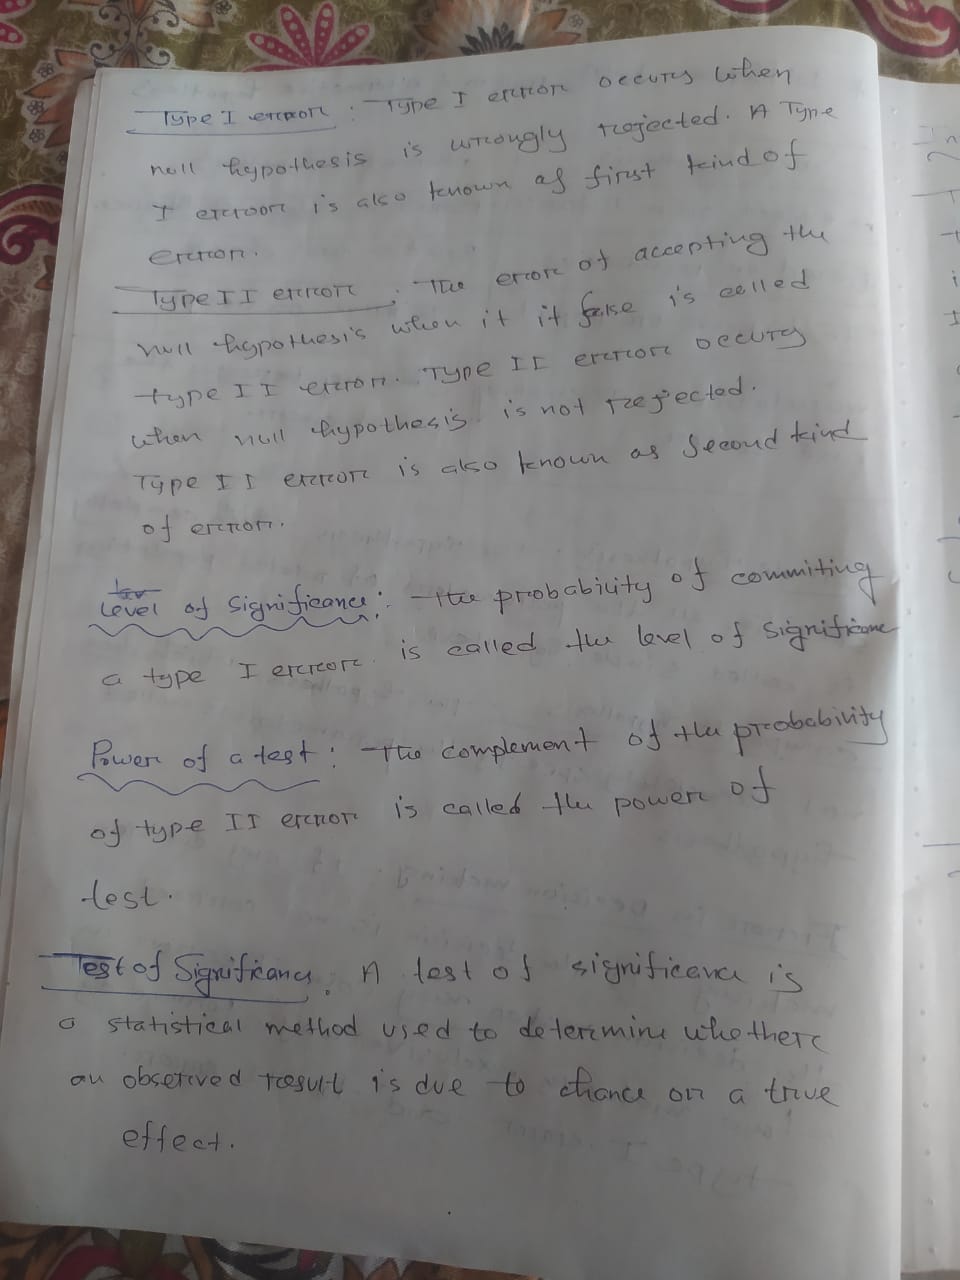 Type I error : Type I error occurs when
null hypothesis is wrongly rejected. A Type
I error is also known as first kind of
error.
Type II error : The error of accepting the
null hypothesis when it it false is called
type II error. Type II error occurs
when null hypothesis is not rejected.
Type II error is also known as second kind
of error.
level of significance : The probability of commiting
a type I error is called the level of significane
Power of a test : The complement of the probability
of type II error is called the power of
test.
Test of Significance. A test of significance is
a statistical method used to determine whether
an observed result is due to chance or a true
effect.